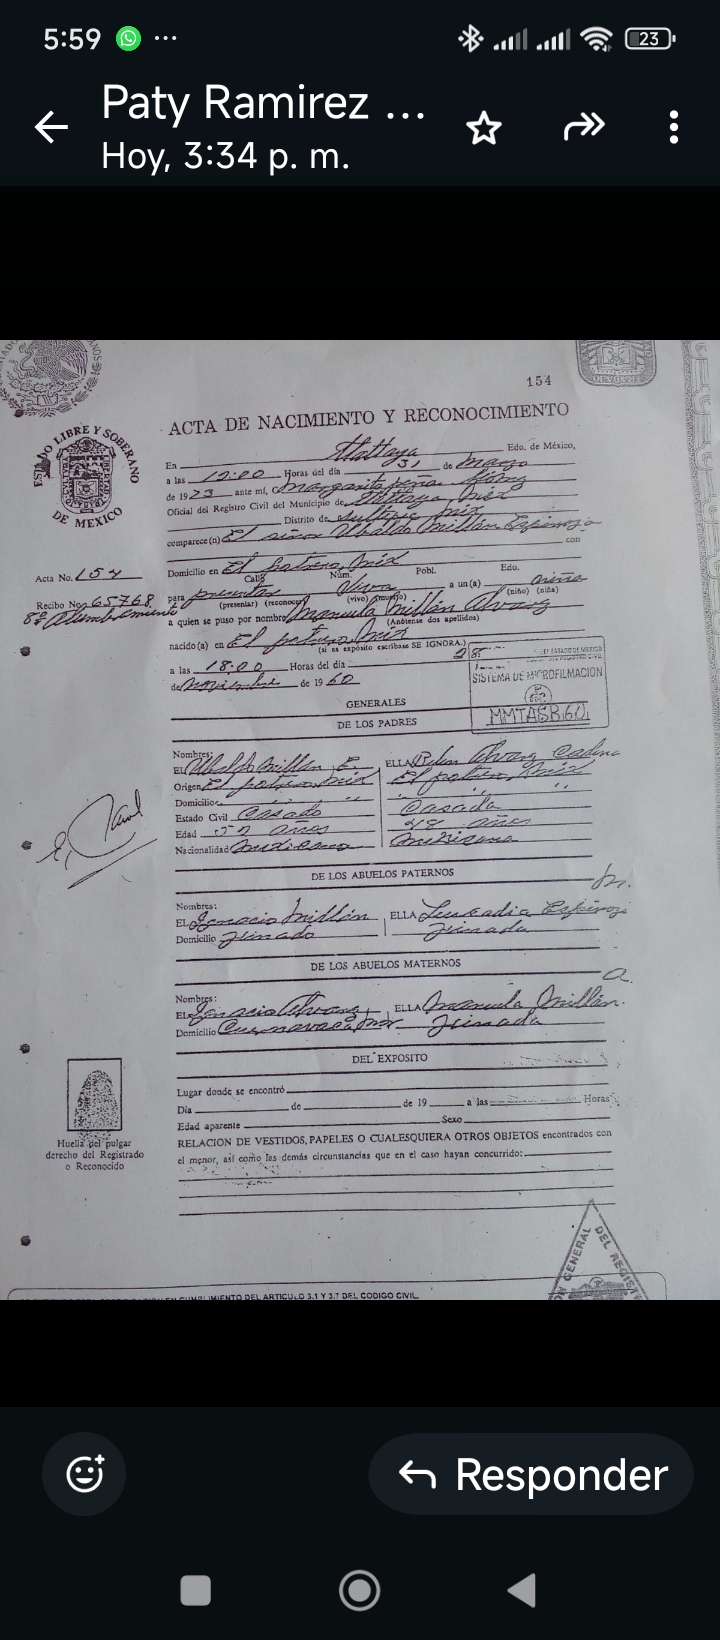 5:59
23
Paty Ramirez ...
Hoy, 3:34 p. m.
154
ACTA DE NACIMIENTO Y RECONOCIMIENTO
ESTADO LIBRE Y SOBERANO
DE MEXICO
En Tlatlaya Edo. de México,
a las 12:00 Horas del día 31 de Marzo
de 1973 ante mí, Margarita
Oficial del Registro Civil del Municipio de Tlatlaya Méx
Distrito de Sultepec Méx
comparece(n) El señor Ubaldo Millán Espinoza
con
Domicilio en El potrero, Méx
Calle Núm. Pobl. Edo.
Acta No. 154
para presentar Viva a un(a) niña
(presentar) (reconocer) (vivo) (muerto) (niño) (niña)
Recibo No. 65768
8º Alumbramiento
a quien se puso por nombre Manuela Millán Alvarez
(Anótense dos apellidos)
nacido(a) en El potrero Méx
(si es expósito escríbase SE IGNORA.)
a las 18:00 Horas del día 28
de Noviembre de 1960
SISTEMA DE MICROFILMACION
MMTASB601
GENERALES
DE LOS PADRES
Nombres:
EL Ubaldo Millán E. ELLA Alvarez Cadena
Origen El potrero, Méx El potrero, Méx
Domicilio " " " "
Estado Civil Casado Casada
Edad años 48 años
Nacionalidad Mexicano Mexicana
DE LOS ABUELOS PATERNOS
Nombres:
EL Ignacio Millán ELLA Leucadia Espinoza
Domicilio Finado Finada
DE LOS ABUELOS MATERNOS
Nombres:
EL Ignacio Alvarez ELLA Manuela Millán
Domicilio Cuernavaca Mor Finada
DEL EXPOSITO
Lugar donde se encontró
Día de de 19 a las Horas
Edad aparente Sexo
RELACION DE VESTIDOS, PAPELES O CUALESQUIERA OTROS OBJETOS encontrados con
el menor, así como las demás circunstancias que en el caso hayan concurrido:
Huella del pulgar
derecho del Registrado
o Reconocido
GENERAL DEL REGIST
CUMPLIMIENTO DEL ARTICULO 3.1 Y 3.7 DEL CODIGO CIVIL.
Responder